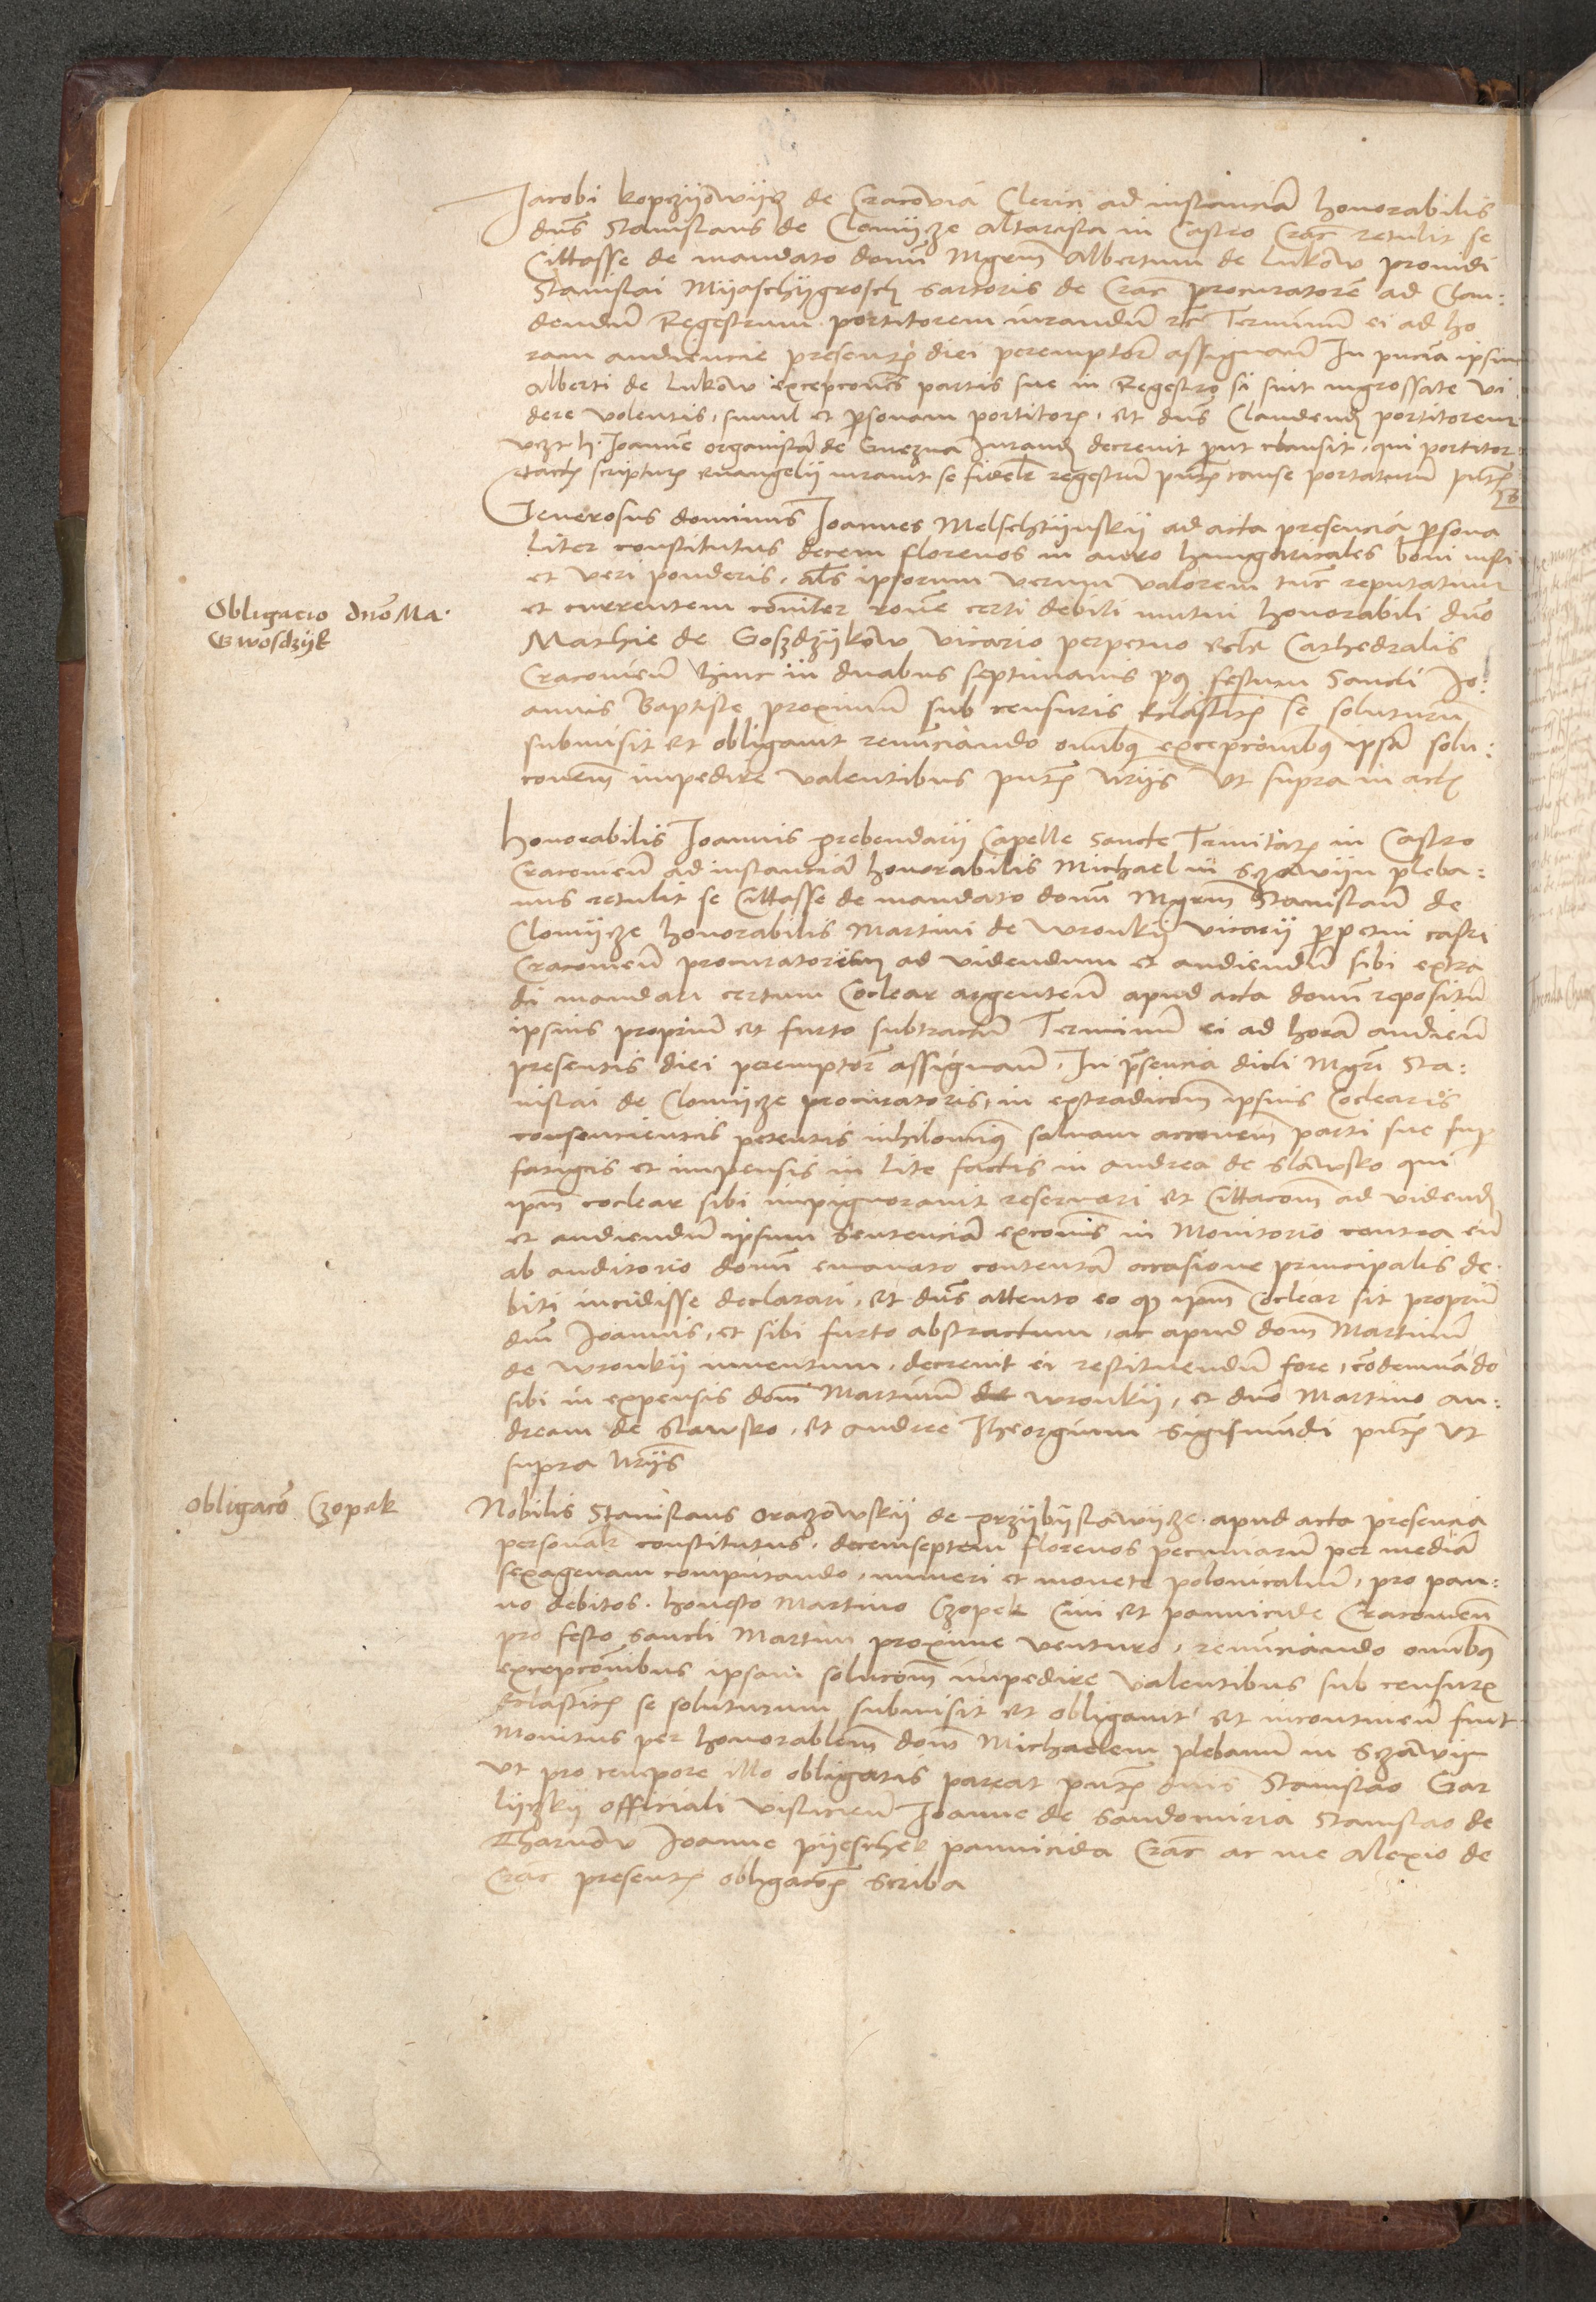 Jacobi kopczyowycz de Cracovia Clerici ad instanciam honorabilis
dns Stanislaus de Clomycze altarista in Castro Crac retulit se
Cittasse de mandato domni Mgrm Albertum de Lukow providi
Stanislai Myaschygrosch sartoris de Crac procuratorem ad Clau:
dendum Regestrum portitorem iurandum rc Terminum ei ad ho
ram audiencie presentis diei peremptor assignatum In pncia ipsius
Alberti de Lukow excepciones partis sue in Regestro si sint ingrossate vi
dere volentis, simul et personam portitoris, et dns Claudendum portitorem
vczt h. Joannem organistam de Gnezna Iurand decrevit put clausit, qui portitor
tactis scripturis evangelij iuravit se fideliter regestrum pntis cause portaturum pntibus
Generosus dominus Joannes Melschtynsky ad acta presencia persona
liter constitutus decem florenos in auro hungaricales boni iusti
et veri ponderis, als ipsorum verum valorem tunc reputatum
et currentem comuniter rone certi debiti mutui honorabili dno
Mathie de Goszdzykow vicario perpetuo eccle Cathedralis
Cracovien hinc in duabus septimanis post festum Sancti Jo:
annis Baptiste proximum sub censuris ecclasticis se soluturum
submisit et obligavit renunciando omnibus excepcionibus ipsam solu:
cionem impedire valentibus pntibus vrijs vt supra in actis
Obligacio dno Ma.
Gwosdzyk
honorabilis Joannis prebendarij Capelle Sancte Trinitatis in Castro
Cracovien ad instanciam honorabilis Michael in Sczawyn pleba:
nus retulit se Cittasse de mandato domni Mgrm Stanislaum de
Clomycze honorabilis Martini de Wronky vicarij perpetui castri
Cracovien procuratorem ad videndum et audiendum sibi extra
di mandari certum Coclear argenteum apud acta domni repositum
ipsius proprium et furto subtractum Terminum ei ad horam audien
presentis diei peremptor assignatum. In presencia dicti Mgri Sta:
nislai de Clomycze procuratoris, in extradicionem ipsius Coclearis
consencientis petentis nihilominus salvam accionem parti sue sup
fatigis et impensis in lite factis in andrea de Slawsko qui
ipm coclear sibi impignoravit reservari et Cittacionem ad videnda
et audiendum ipsum sentenciam excomis in Monitorio contra eum
ab auditorio domni emanato contentam occasione principalis de
biti incidisse declarari. et dns attento eo qd ipm Coclear sit proprium
dni Joannis, et sibi furto abstractum, ac apud dom Martinum
de Wronky inventum, decrevit ei restituendum fore, condemnando
sibi in expensis dom Martinum de Wronky, et dno Martino an:
dream de Slawsko, et andree Jheorgium Sigismundi pntibus vt
supra vrijs
Obligaco Czopek
Nobilis Stanislaus Oraczowsky de Przybyslawycze. apud acta presencia
personalr constitutus, decemseptem florenos pecuniarum per mediam
sexagenam computando, numeri et monete polonicalium, pro pan:
no debitos. honesto Martino Czopek Civi et pannicide Cracovien
pro festo sancti Martini proxime venturo, renunciando omnibus
excepcionibus ipsam solucionem impedire valentibus sub censuris
ecclasticis se soluturum submisit et obligavit et incontinen fuit
Monitus per honorabilem dom Michaelem plebanum in Sczawyn
vt pro tempore illo obligatis pareat pntibus dnis Stanislao Gar
lyczky officiali vislicien Joanne de Sandomiria Stanislao de
Tharnow Joanne pyeschek pannicida Crac ac me Alexio de
Crac presentis obligacionis scriba